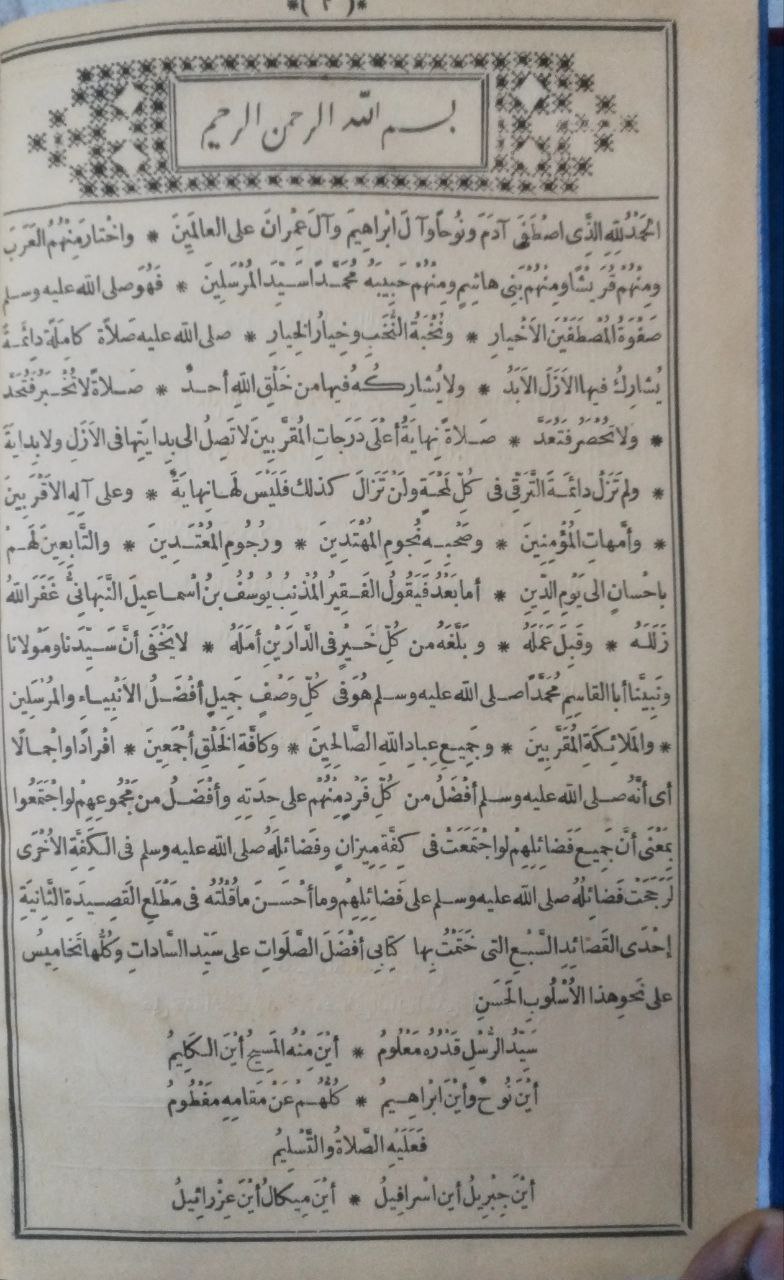 *( ٢ )*
بسم الله الرحمن الرحيم
الحَمْدُ لِلّٰهِ الَّذِى اصْطَفَى آدَمَ وَنُوحًا وَآلَ ابْرَاهِيمَ وَآلَ عِمْرَانَ على العالَمِينَ * واخْتارَ مِنْهُمُ العَرَبَ
ومِنْهُمْ قُرَيْشًا ومِنْهُمْ بَنِى هاشِمٍ ومِنْهُمْ حَبِيبَهُ مُحَمَّدًا سَيِّدَ المُرْسَلِينَ * فَهُوَ صلى الله عليه وسلم
صَفْوَةُ المُصْطَفَيْنَ الأَخْيارِ * ونُخْبَةُ النُّخَبِ وخِيارُ الخِيارِ * صلى الله عليه صَلاةً كامِلَةً دائِمَةً
يُشارِكُ فيها الأَزَلَ الأَبَدُ * ولا يُشارِكُهُ فيها من خَلْقِ اللهِ أحَدٌ * صَلاةً لا تُخْبَرُ فَتُحَدَّ
* ولا تُحْصَرُ فَتُعَدَّ * صَلاةً نِهايَةُ أعْلَى دَرَجاتِ المُقَرَّبِينَ لا تَصِلُ الى بِدايَتِها فى الأَزَلِ ولا بِدايَةَ
* ولم تَزَلْ دائِمَةَ التَّرَقِّى فى كُلِّ لَمْحَةٍ ولَنْ تَزالَ كذلك فَلَيْسَ لَها نِهايَةٌ * وعلى آلِهِ الأَقْرَبِينَ
* وأُمَّهاتِ المُؤْمِنِينَ * وصَحْبِهِ نُجُومِ المُهْتَدِينَ * ورُجُومِ المُعْتَدِينَ * والتَّابِعِينَ لَهُمْ
بإحْسانٍ الى يَوْمِ الدِّينِ * أما بَعْدُ فَيَقُولُ الفَقِيرُ المُذْنِبُ يُوسُفُ بنُ اسْماعِيلَ النَّبَهانِىُّ غَفَرَ اللهُ
زَلَلَهُ * وقَبِلَ عَمَلَهُ * وبَلَّغَهُ من كُلِّ خَيْرٍ فى الدَّارَيْنِ أمَلَهُ * لا يَخْفَى أنَّ سَيِّدَنا ومَوْلانا
ونَبِيَّنا أبا القاسِمِ مُحَمَّدًا صلى الله عليه وسلم هُوَ فى كُلِّ وَصْفٍ جَمِيلٍ أفْضَلُ الأَنْبِياءِ والمُرْسَلِين
* والمَلائِكَةِ المُقَرَّبِينَ * وجَمِيعِ عِبادِ اللهِ الصَّالِحِينَ * وكافَّةِ الخَلْقِ أجْمَعِينَ * افْرادًا واجْمالًا
أى أنَّهُ صلى الله عليه وسلم أفْضَلُ من كُلِّ فَرْدٍ مِنْهُمْ على حِدَتِهِ وأفْضَلُ من مَجْمُوعِهِمْ لو اجْتَمَعُوا
بِمَعْنَى أنَّ جَمِيعَ فَضائِلِهِمْ لو اجْتَمَعَتْ فى كِفَّةِ مِيزانٍ وفَضائِلَهُ صلى الله عليه وسلم فى الكِفَّةِ الأُخْرَى
لَرَجَحَتْ فَضائِلُهُ صلى الله عليه وسلم على فَضائِلِهِمْ وما أحْسَنَ ما قُلْتُهُ فى مَطْلَعِ القَصِيدَةِ الثَّانِيَةِ
إحْدَى القَصائِدِ السَّبْعِ التى خَتَمْتُ بِها كِتابِى أفْضَلَ الصَّلَواتِ على سَيِّدِ السَّاداتِ وكُلُّها تَخامِيسُ
على نَحْوِ هذا الأُسْلُوبِ الحَسَنِ
سَيِّدُ الرُّسْلِ قَدْرُهُ مَعْلُومُ * أيْنَ مِنْهُ المَسِيحُ أيْنَ الكَلِيمُ
أيْنَ نُوحٌ وأيْنَ ابْراهِيمُ * كُلُّهُمْ عَنْ مَقامِهِ مَفْطُومُ
فَعَلَيْهِ الصَّلاةُ والتَّسْلِيمُ
أيْنَ جِبْرِيلُ أين اسْرافِيلُ * أيْنَ مِيكالُ أيْنَ عِزْرائِيلُ